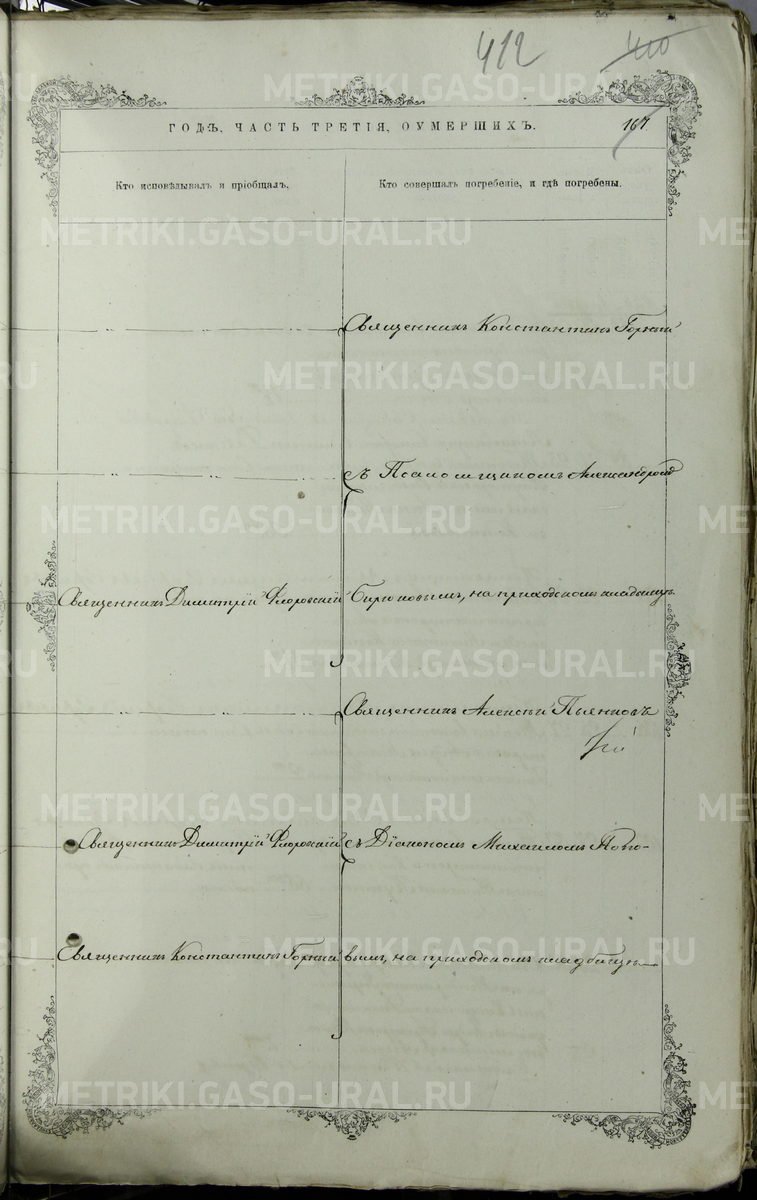 412
410
ГОДѢ, ЧАСТЬ ТРЕТІЯ, ОУМЕРШИХЪ.
167
Кто исповѣдывалъ и пріобщалъ.
Кто совершалъ погребеніе, и гдѣ погребены.
Священникъ Константинъ Горный
съ Псаломщикомъ Александромъ
Священникъ Димитрій Флоровскій
Бирюковымъ, на приходскомъ кладбищѣ
Священникъ Алексѣй Пьянковъ
Священникъ Димитрій Флоровскій
съ Діакономъ Михаиломъ Попо-
Священникъ Константинъ Горный
вымъ, на приходскомъ кладбищѣ
METRIKI.GASO-URAL.RU